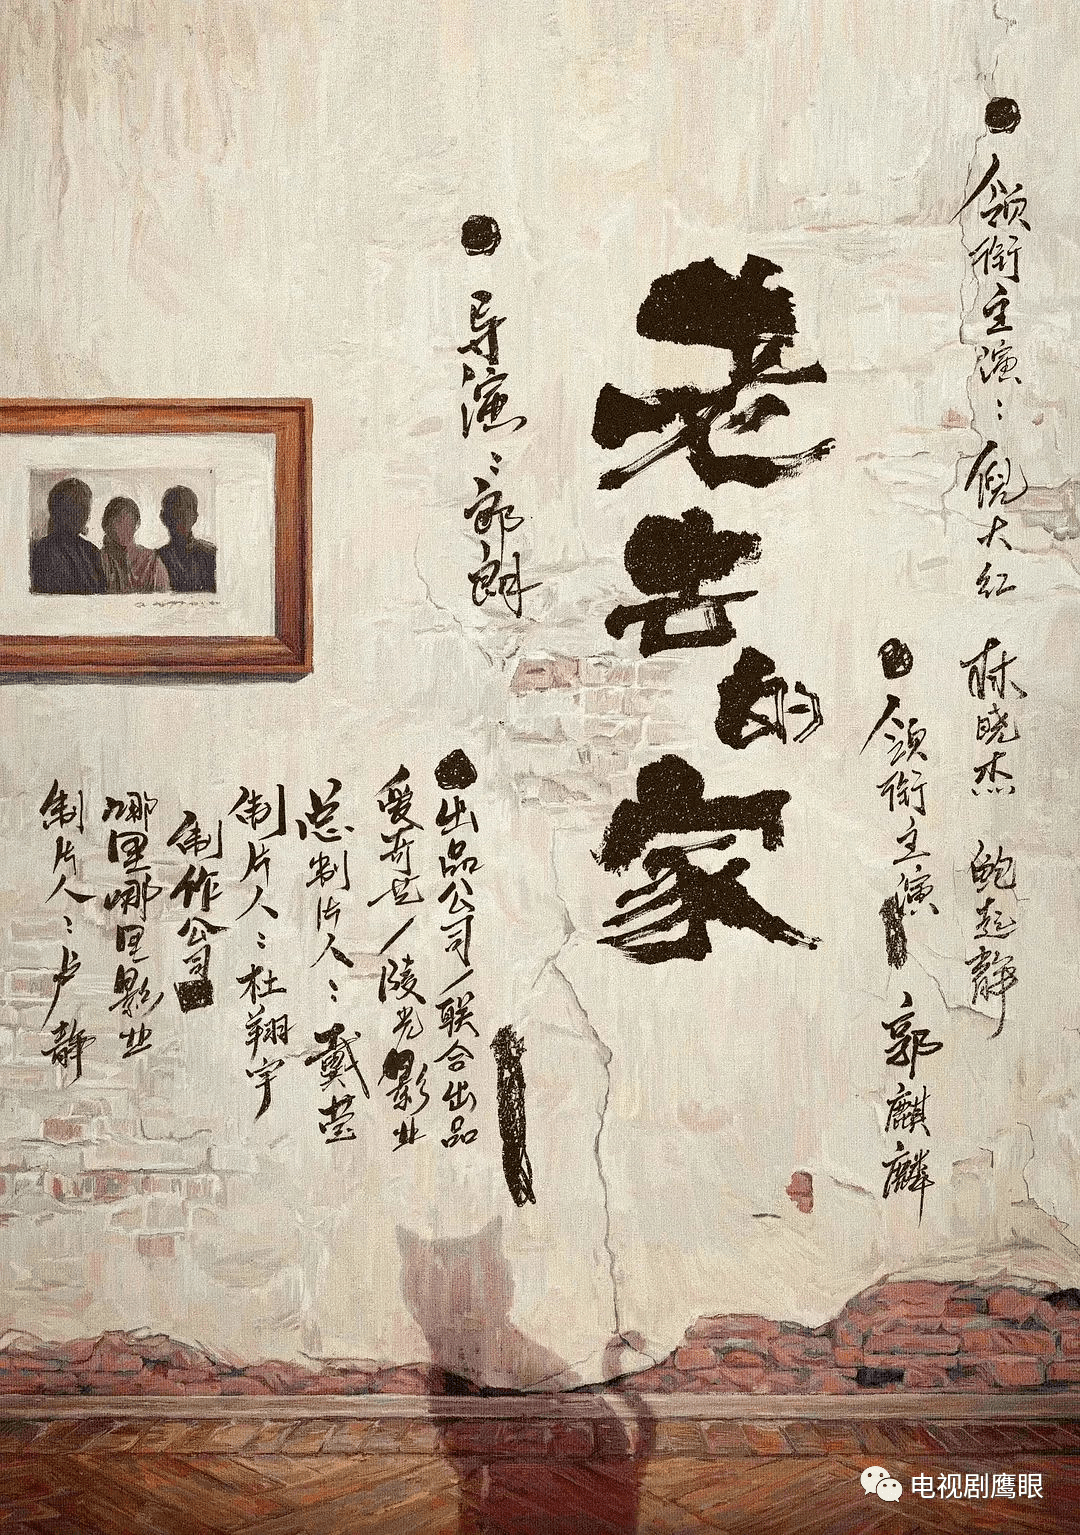 领衔主演：倪大红 林晓杰 鲍起静
领衔主演 郭麒麟
老去的家
导演：郭朗
出品公司/联合出品
爱奇艺/陵光影业
总制片人：戴莹
制片人：杜翔宇
制作公司
哪里哪里影业
制片人：卢静
电视剧鹰眼